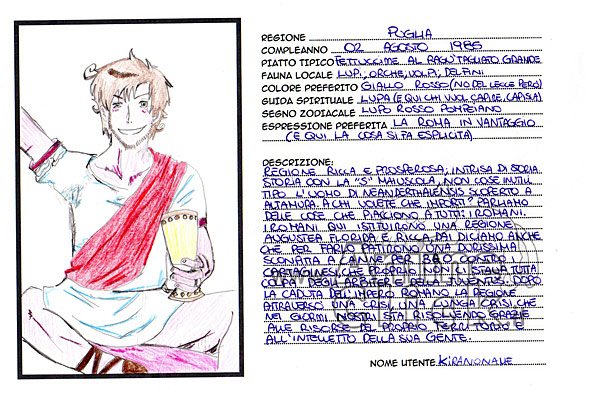 REGIONE PUGLIA
COMPLEANNO 02 AGOSTO 1985
PIATTO TIPICO FETTUCCINE AL RAGU' TAGLIATO GRANDE
FAUNA LOCALE LUPI, ORCHE, VOLPI, DELFINI
COLORE PREFERITO GIALLO ROSSO (NO DEL LECCE PERÒ)
GUIDA SPIRITUALE LUPA (E QUI CHI VUOL CAPIRE, CAPISCA)
SEGNO ZODIACALE LUPO ROSSO POMPEIANO
ESPRESSIONE PREFERITA LA ROMA IN VANTAGGIO
(E QUI LA COSA SI FA ESPLICITA)
DESCRIZIONE:
REGIONE RICCA E PROSPEROSA, INTRISA DI STORIA
STORIA CON LA "S" MAIUSCOLA, NON COSE INUTILI
TIPO L'UOMO DI NEANDERTHALENSIS SCOPERTO A
ALTAMURA. A CHI VOLETE CHE IMPORTI? PARLIAMO
DELLE COSE CHE PIACCIONO A TUTTI: I ROMANI.
I ROMANI QUI ISTITUIRONO UNA REGIONE
AUGUSTEA FLORIDA E RICCA, DAI DICIAMO ANCHE
CHE PER FARLO PATIRONO UNA DURISSIMA
SCONFITTA A CANNE PER CONTRO I
CARTAGINESI, CHE PROPRIO NON CI STAVA, TUTTA
COLPA DEGLI ARBITER E DELLA JUVENTUS. DOPO
LA CADUTA DELL'IMPERO ROMANO LA REGIONE
ATTRAVERSO UNA CRISI, UNA LUNGA CRISI, CHE
NEI GIORNI NOSTRI STA RISOLVENDO GRAZIE
ALLE RISORSE DEL PROPRIO TERRITORIO E
ALL'INTELLETTO DELLA SUA GENTE.
NOME UTENTE KIRANONALE